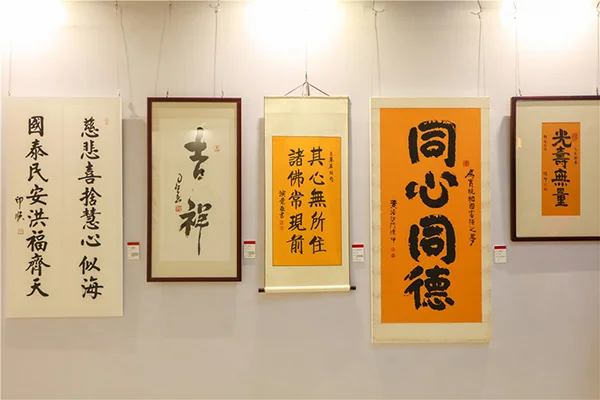 慈悲喜捨慧心似海
國泰民安洪福齊天
印順
吉祥
其心無所住
諸佛常現前
同心同德
光壽無量